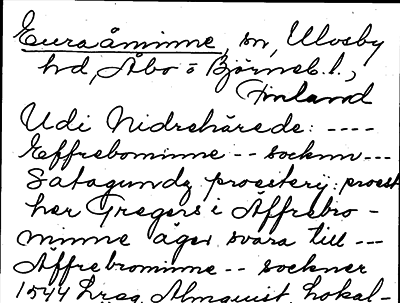 Euraåminne, sn, Ulvsby
hd, Åbo o Björneb. l.,
Finland
Udi Nidrehärede: ----
Effrebominne -- socknn ---
Satagundz proestery: proest
her Gregers i Äffrebo-
minne äger svara till ---
Äffrebominne -- sockner
1544 Almquist Lokal-